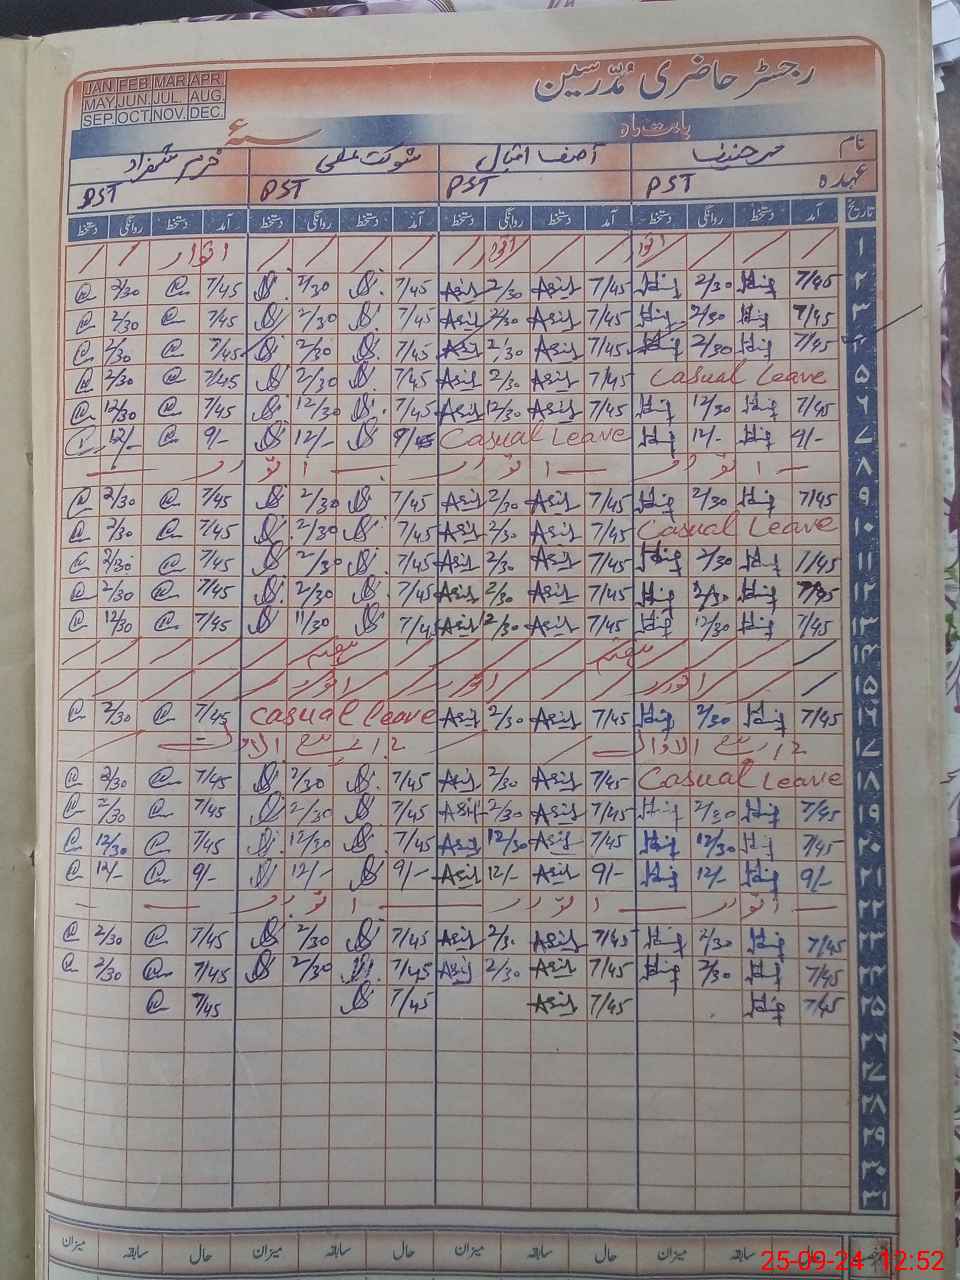 رجسٹر حاضری مدرسین
JAN FEB MAR APR
MAY JUN. JUL. AUG
SEP. OCT NOV. DEC.
بابت ماہ سنہ ء
نام محمد حنیف آصف اقبال شوکت علی خرم شہزاد
عہدہ PST PST PST PST
تاریخ آمد دستخط روانگی دستخط آمد دستخط روانگی دستخط آمد دستخط روانگی دستخط آمد دستخط روانگی دستخط
۱ اتوار اتوار اتوار
۲ 7/45 2/30 7/45 Asif 2/30 Asif 7/45 2/30 7/45 2/30
۳ 7/45 2/30 7/45 Asif 2/30 Asif 7/45 2/30 7/45 2/30
۴ 7/45 2/30 7/45 Asif 2/30 Asif 7/45 2/30 7/45 2/30
۵ Casual Leave 7/45 Asif 2/30 Asif 7/45 2/30 7/45 2/30
۶ 7/45 12/30 7/45 Asif 12/30 Asif 7/45 12/30 7/45 12/30
۷ 9/- 12/- Casual Leave 9/45 12/- 9/- 12/-
۸ اتوار اتوار اتوار اتوار
۹ 7/45 2/30 7/45 Asif 2/30 Asif 7/45 2/30 7/45 2/30
۱۰ Casual Leave 7/45 Asif 2/30 Asif 7/45 2/30 7/45 2/30
۱۱ 7/45 2/30 7/45 Asif 2/30 Asif 7/45 2/30 7/45 2/30
۱۲ 2/30 7/45 Asif 2/30 Asif 7/45 2/30 7/45 2/30
۱۳ 7/45 12/30 7/45 Asif 2/30 Asif 7/45 11/30 7/45 12/30
۱۴ ہفتہ ہفتہ
۱۵ اتوار اتوار اتوار
۱۶ 7/45 2/30 7/45 Asif 2/30 Asif Casual leave 7/45 2/30
۱۷ 12 ربیع الاول 12 ربیع الاول
۱۸ Casual Leave 7/45 Asif 2/30 Asif 7/45 2/30 7/45 2/30
۱۹ 7/45 2/30 7/45 Asif 2/30 Asif 7/45 2/30 7/45 2/30
۲۰ 7/45 12/30 7/45 Asif 12/30 Asif 7/45 12/30 7/45 12/30
۲۱ 9/- 12/- 9/- Asif 12/- Asif 9/- 12/- 9/- 12/-
۲۲ اتوار اتوار اتوار اتوار
۲۳ 7/45 2/30 7/45 Asif 2/30 Asif 7/45 2/30 7/45 2/30
۲۴ 7/45 2/30 7/45 Asif 2/30 Asif 7/45 2/30 7/45 2/30
۲۵ 7/45 7/45 Asif 7/45 7/45
۲۶
۲۷
۲۸
۲۹
۳۰
۳۱
حال سابقہ میزان حال سابقہ میزان حال سابقہ میزان حال سابقہ میزان
25-09-24 12:52